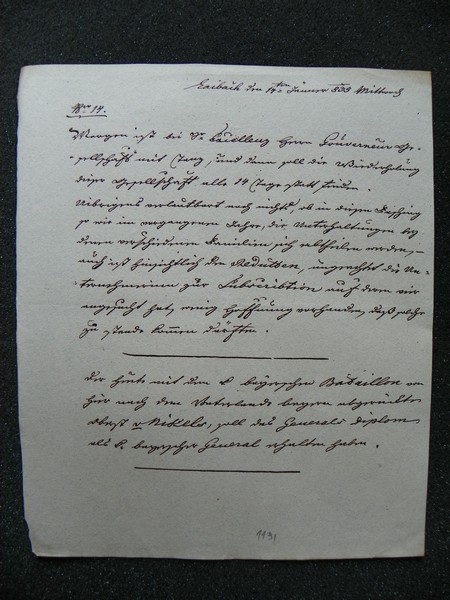 Laibach den 14ten Jänner 835 Mittwoch
Nro 14.
Morgen ist bei Sr Excellenz Herrn Gouverneur Ge-
sellschaft mit Tanz, und dann soll die Wiederholung
dieser Gesellschaft alle 14 Tage statt finden.
Uibrigens verlautbart noch nichts, ob in diesem Fasching
so wie im vergangenen Jahre, die Unterhaltungen bey
denen verschiedenen Familien sich abtheilen werden, –
auch ist hinsichtlich der Redutten, ungeachtet die Un-
ternehmerinn zur Subscribtion auf dem wir
angesucht hat, wenig Hoffnung vorhanden, daß solche
zu stande kommen dürften.
Der heute mit dem k. bayerschen Bataillon von
hier nach dem Vaterlande Bayern abgerückte
Obrist v., soll das Generals diplom
als k. bayerscher General erhalten haben.
1191